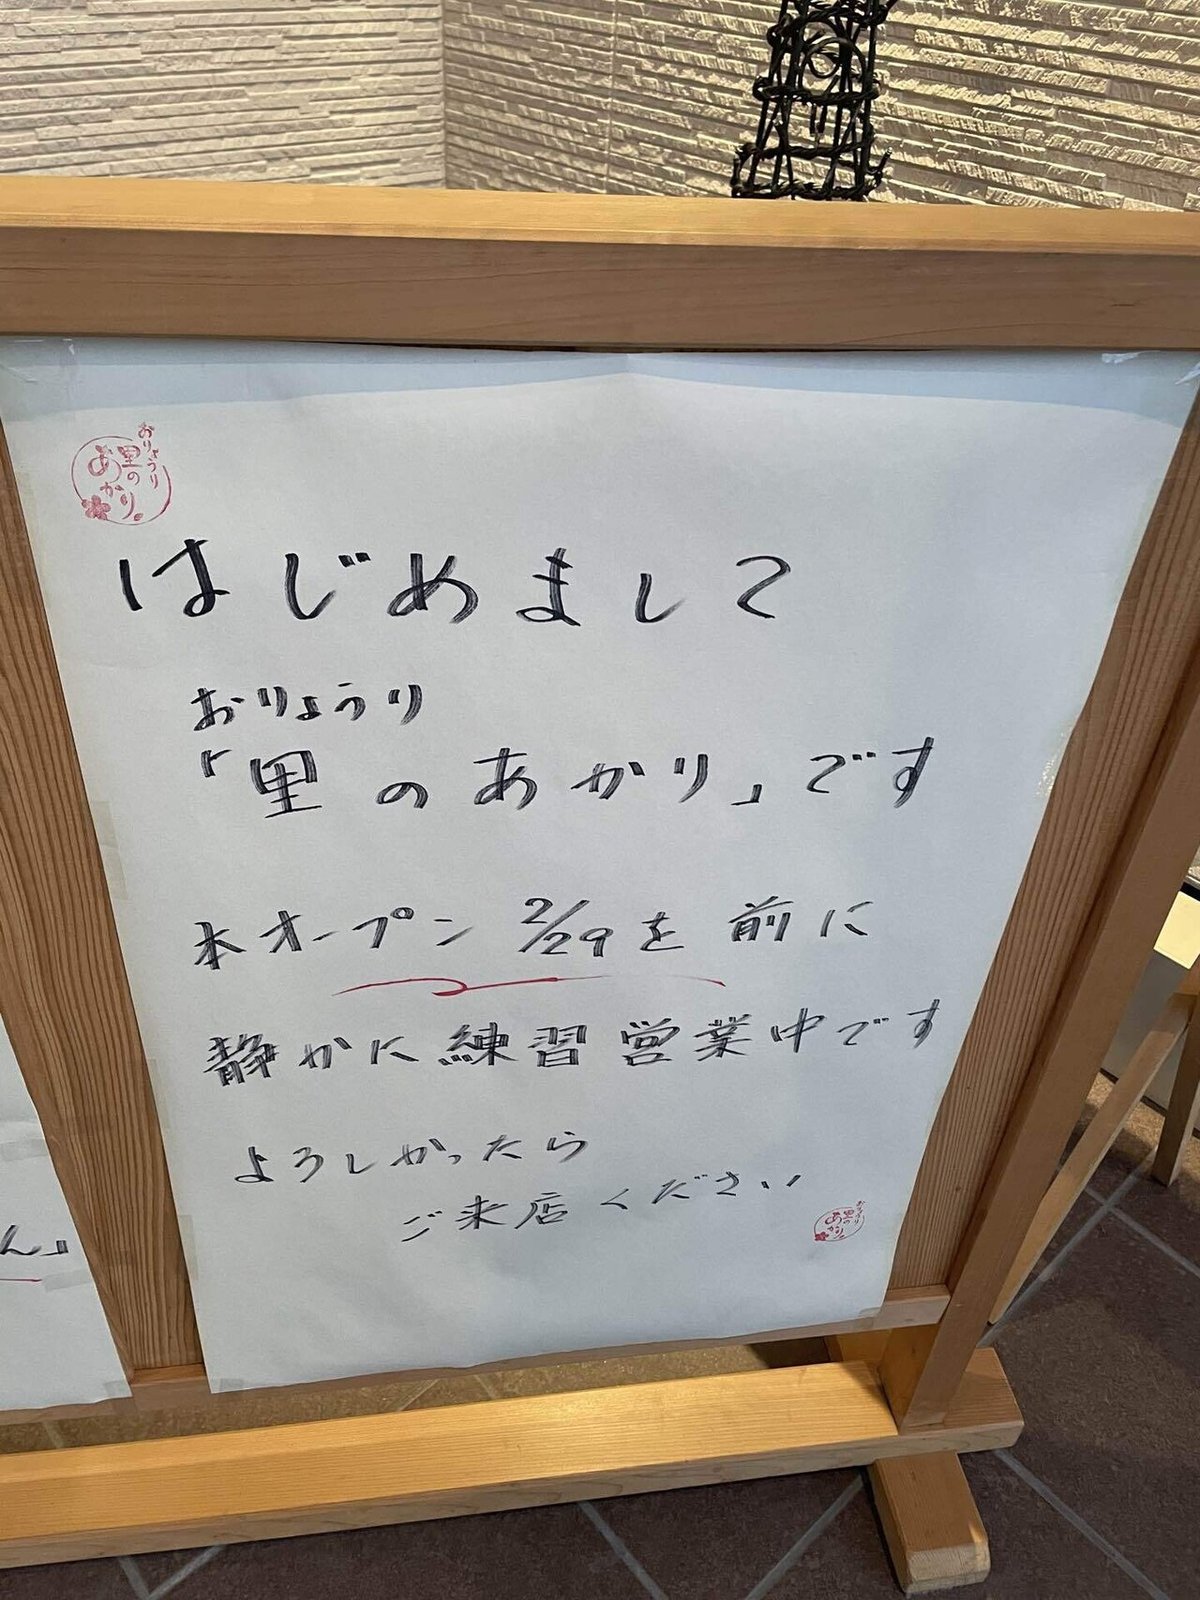 おりょうり
里の
あかり
はじめまして
おりょうり
「里のあかり」です
本オープン 2/29を前に
静かに練習営業中です
よろしかったら
ご来店ください
おりょうり
里の
あかり
ん」